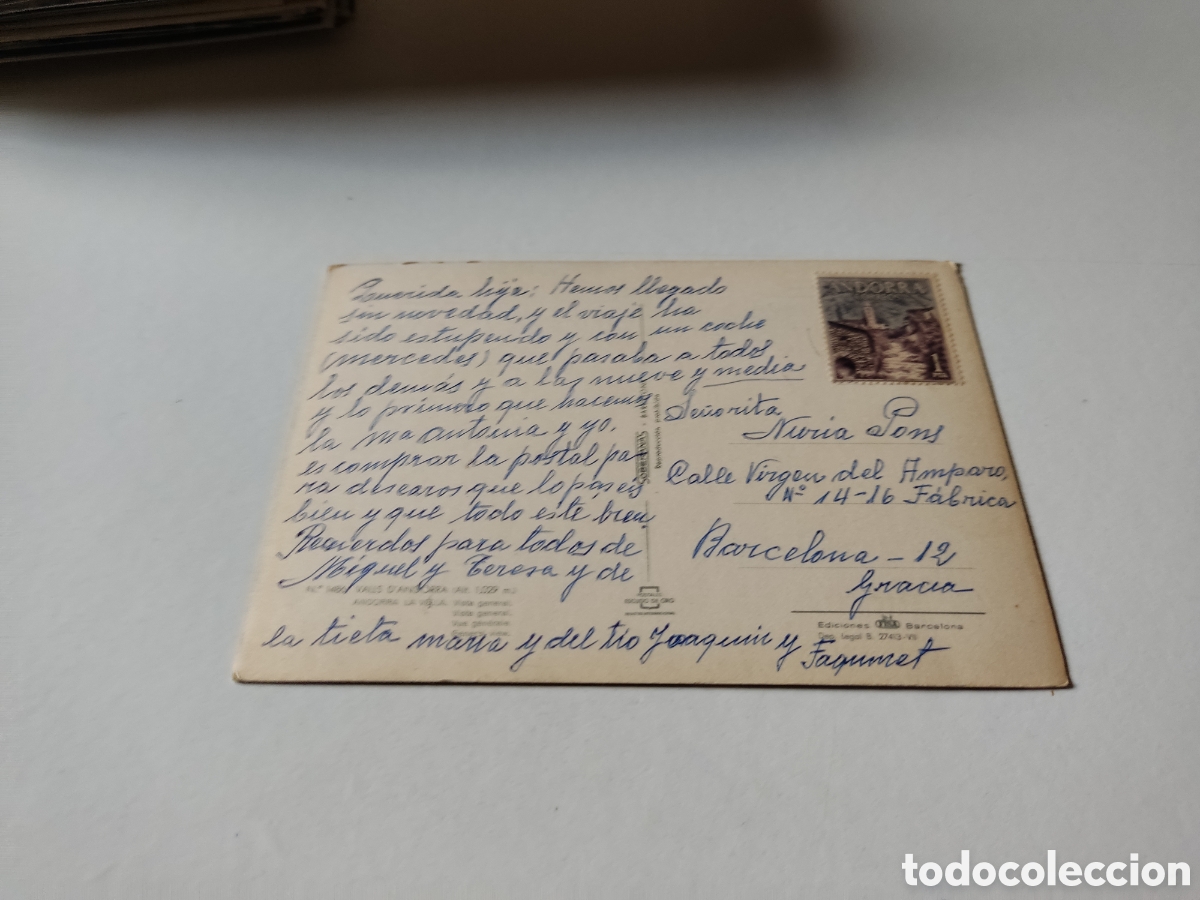 Querida hija: Hemos llegado
sin novedad, y el viaje ha
sido estupendo y con un coche
(mercedes) que pasaba a todos
los demás y a las nueve y media
y lo primero que hacemos
la Mª Antonia y yo.
es comprar la postal pa-
ra desearos que lo paseis
bien y que todo esté bien.
Recuerdos para todos de
Miguel y Teresa y de
la tieta maria y del tio Joaquin y
ANDORRA
1
Señorita
Nuria Pons
Calle Virgen del Amparo,
Nº 14-16 Fábrica
Barcelona - 12
Gracia
VALLS D'ANDORRA (Alt. 1.029 m.)
ANDORRA LA VELLA. Vista general.
Vista general.
Vue générale.
General view.
POSTALES
ESCUDO DE ORO
Ediciones FISA Barcelona
Dep. Legal B. 27413-VII
todocoleccion